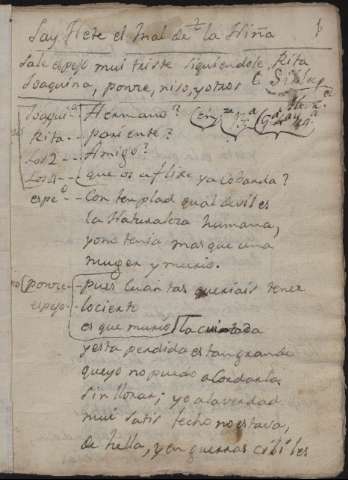 Say Nete el Inal de la Niña
Sale espejo mui triste siguiendole Rita
Joaquina, ponze, niso, y otros
Joaqui.ª - Hermano?
Rita - - pariente?
Los 2 - - Amigo?
Los 4 - - que os aflixe, y acobarda?
espe.º - - Contemplad qual devil es
la Naturaleza humana,
yo no tenia mas que una
muger y murio.
ponze - pues cuantas queriais tener
espejo - lo ciento
es que murio la cuitada
y esta perdida es tan grande
que yo no puedo acordarla
sin llorar; yo a la verdad
mui satisfecho no estava,
de hella, y en guerras cibiles